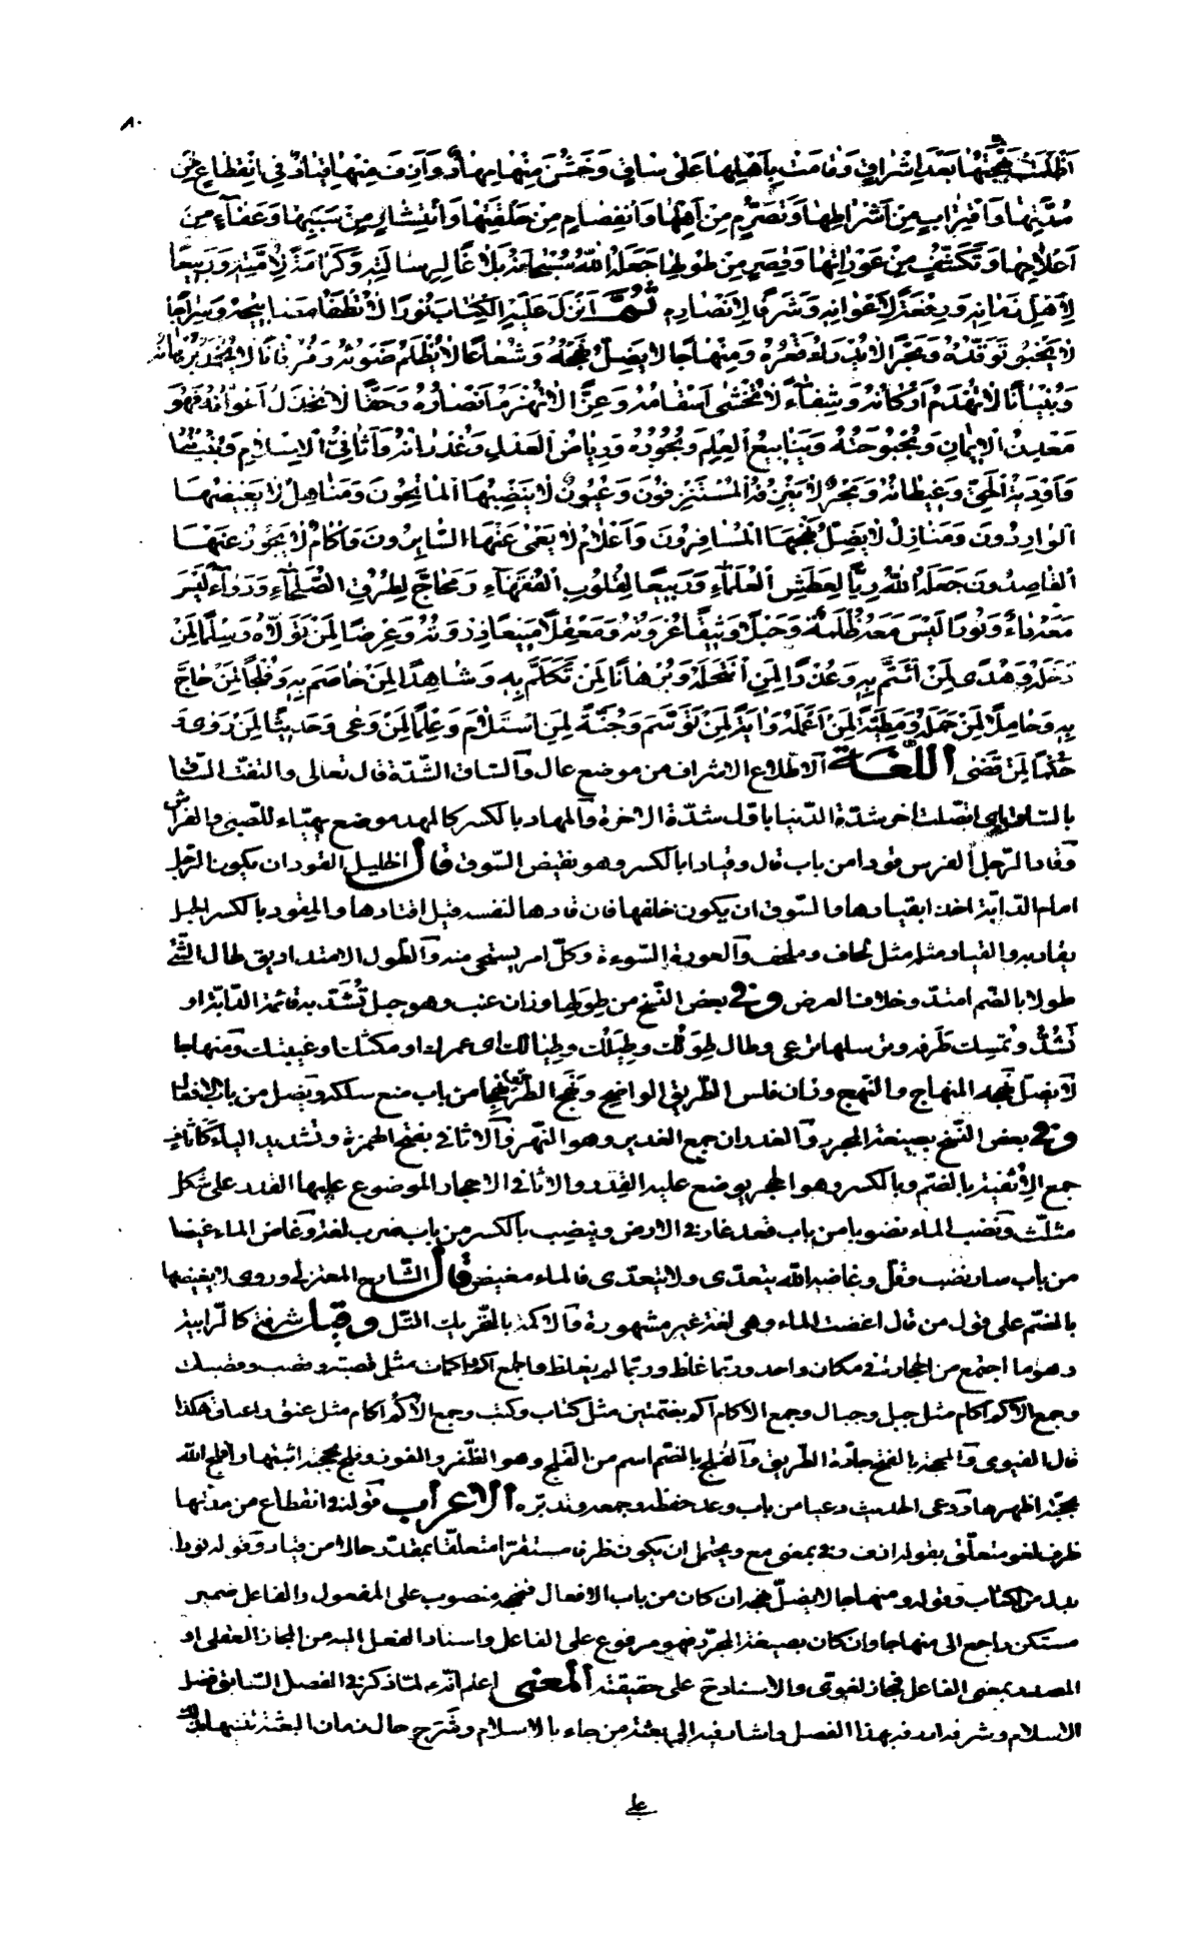 ٨٠
أَظْلَمَتْ بَهْجَتُهَا بَعْدَ إِشْرَاقٍ وَقَامَتْ بِأَهْلِهَا عَلَى سَاقٍ وَخَشُنَ مِنْهَا مِهَادٌ وَأَزِفَ مِنْهَا قِيَادٌ فِي انْقِطَاعٍ مِنْ
مُدَّتِهَا وَاقْتِرَابٍ مِنْ أَشْرَاطِهَا وَتَصَرُّمٍ مِنْ أَهْلِهَا وَانْفِصَامٍ مِنْ حَلْقَتِهَا وَانْتِشَارٍ مِنْ سَبَبِهَا وَعَفَاءٍ مِنْ
أَعْلَامِهَا وَتَكَشُّفٍ مِنْ عَوْرَاتِهَا وَقِصَرٍ مِنْ طُولِهَا جَعَلَهُ اللهُ سُبْحَانَهُ بَلَاغًا لِرِسَالَتِهِ وَكَرَامَةً لِأُمَّتِهِ وَرَبِيعًا
لِأَهْلِ زَمَانِهِ وَرِفْعَةً لِأَعْوَانِهِ وَشَرَفًا لِأَنْصَارِهِ ثُمَّ أَنْزَلَ عَلَيْهِ الْكِتَابَ نُورًا لَا تُطْفَأُ مَصَابِيحُهُ وَسِرَاجًا
لَا يَخْبُو تَوَقُّدُهُ وَبَحْرًا لَا يُدْرَكُ قَعْرُهُ وَمِنْهَاجًا لَا يَضِلُّ نَهْجُهُ وَشُعَاعًا لَا يُظْلِمُ ضَوْئُهُ وَفُرْقَانًا لَا يُخْمَدُ بُرْهَانُهُ
وَبُنْيَانًا لَا تُهْدَمُ أَرْكَانُهُ وَشِفَاءً لَا تُخْشَى أَسْقَامُهُ وَعِزًّا لَا تُهْزَمُ أَنْصَارُهُ وَحَقًّا لَا تُخْذَلُ أَعْوَانُهُ فَهُوَ
مَعْدِنُ الْإِيمَانِ وَبُحْبُوحَتُهُ وَيَنَابِيعُ الْعِلْمِ وَبُحُورُهُ وَرِيَاضُ الْعَدْلِ وَغُدْرَانُهُ وَأَثَافِيُّ الْإِسْلَامِ وَبُنْيَانُهُ
وَأَوْدِيَةُ الْحَقِّ وَغِيطَانُهُ وَبَحْرٌ لَا يَنْزِفُهُ الْمُسْتَنْزِفُونَ وَعُيُونٌ لَا يَنْضِبُهَا الْمَاتِحُونَ وَمَنَاهِلُ لَا يَغِيضُهَا
الْوَارِدُونَ وَمَنَازِلُ لَا يَضِلُّ نَهْجَهَا الْمُسَافِرُونَ وَأَعْلَامٌ لَا يَعْمَى عَنْهَا السَّائِرُونَ وَآكَامٌ لَا يَجُوزُ عَنْهَا
الْقَاصِدُونَ جَعَلَهُ اللهُ رِيًّا لِعَطَشِ الْعُلَمَاءِ وَرَبِيعًا لِقُلُوبِ الْفُقَهَاءِ وَمَحَاجَّ لِطُرُقِ الصُّلَحَاءِ وَدَوَاءً لَيْسَ
مَعَهُ دَاءٌ وَنُورًا لَيْسَ مَعَهُ ظُلْمَةٌ وَحَبْلًا وَثِيقًا عُرْوَتُهُ وَمَعْقِلًا مَنِيعًا ذِرْوَتُهُ وَعِزًّا لِمَنْ تَوَلَّاهُ وَسِلْمًا لِمَنْ
دَخَلَهُ وَهُدًى لِمَنِ ائْتَمَّ بِهِ وَعُذْرًا لِمَنِ انْتَحَلَهُ وَبُرْهَانًا لِمَنْ تَكَلَّمَ بِهِ وَشَاهِدًا لِمَنْ خَاصَمَ بِهِ وَفَلْجًا لِمَنْ حَاجَّ
بِهِ وَحَامِلًا لِمَنْ حَمَلَهُ وَمَطِيَّةً لِمَنْ أَعْمَلَهُ وَآيَةً لِمَنْ تَوَسَّمَ وَجُنَّةً لِمَنِ اسْتَلْأَمَ وَعِلْمًا لِمَنْ وَعَى وَحَدِيثًا لِمَنْ رَوَى وَ
حُكْمًا لِمَنْ قَضَى اللُّغَة الاطّلاع الاشراف من موضع عال والساق الشّدّة قال تعالى والتفّت السّاق
بالسّاق اى اتّصلت آخر شدّة الدّنيا باوّل شدّة الآخرة والمهاد بالكسر كالمهد موضع يهيّاء للصّبى والفراش
وقاد الرّجل الفرس قودا من باب قال وقيادا بالكسر وهو نقيض السّوق قال الخليل القود ان يكون الرّجل
امام الدّابّة اخذا بقيادها والسّوق ان يكون خلفها فان قادها لنفسه قيل اقتادها والمقود بالكسر الحبل
يقاد به والقياد مثله مثل لحاف وملحف والعورة السّوءة وكلّ امر يستحى منه والطّول الامتداد يق طال الشّىء
طولا بالضّم امتدّ وخلاف العرض وفى بعض النّسخ من طولها وزان عنب وهو حبل تشدّ به قائمة الدّابّة او
تشدّ وتمسك طرفه وترسلها ترعى وطال طولك وطيلك وطيالك اى عمرك او مكثك او غيبتك ومنهاجا
لا يضلّ نهجه المنهاج والنّهج وزان فلس الطّريق الواضح ونهج الطّريق نهجا من باب منع سلكه ويضل من باب الافعال
وفى بعض النّسخ بصيغة المجرد والغدران جمع الغدير وهو النّهر والاثافى بفتح الهمزة وتشديد الياء كأثاف
جمع الأثفية بالضّم وبالكسر وهو الحجر يوضع عليه القدر والاثافى الاحجار الموضوع عليها القدر على شكل
مثلّث ونضب الماء نضوبا من باب قعد غار فى الارض وينضب بالكسر من باب ضرب لغة وغاض الماء غيضا
من باب سار نضب وقلّ وغاضه اللّه يتعدّى ولا يتعدّى فالماء مغيض قال الشّارح المعتزلى وروى لا يغيضها
بالضّم على قول من قال اغضت الماء وهى لغة غير مشهورة والاكمة بالتّحريك التّل وقيل شرفة كالرّابية
وهو ما اجتمع من الحجارة فى مكان واحد وربّما غلظ وربّما لم يغلظ والجمع اكم واكمات مثل قصبة وقصب وقصبات
وجمع الاكم اكام مثل جبل وجبال وجمع الاكام اكم بضمّتين مثل كتاب وكتب وجمع الأكم آكام مثل عنق واعناق هكذا
قال الفيومى والمحجّة بالفتح جادّة الطّريق والفلج بالضّم اسم من الفلج وهو الظّفر والفوز وفلج بحجّته اثبتها وافلج اللّه
حجّته اظهرها ووعى الحديث وعيا من باب وعد حفظه وجمعه وتدبّره الاعراب قوله فى انقطاع من مدّتها
ظرف لغو متعلّق بقوله ازف وفى بمعنى مع ويحتمل ان يكون ظرفا مستقرّا متعلّقا بمقدّر حالا من قياد وقوله نورا
بدل من الكتاب وقوله ومنهاجا لا يضلّ نهجه ان كان من باب الافعال فنهجه منصوب على المفعول والفاعل ضمير
مستكن راجع الى منهاجا وان كان بصيغة المجرّد فهو مرفوع على الفاعل واسناد الفعل اليه من المجاز العقلى او
المصدر بمعنى الفاعل فجاز لغوى والاسناد ح على حقيقته المعنى اعلم انّه ع لمّا ذكر فى الفصل السّابق فضل
الاسلام وشرفه اردفه بهذا الفصل واشار فيه الى بعثة من جاء بالاسلام وشرح حال زمان البعثة تنبيها بذلك
على